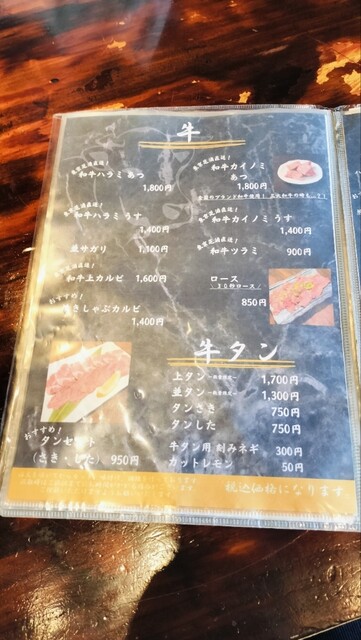 牛
東京芝浦直送！
和牛ハラミ あつ
1,800円
東京芝浦直送！
和牛ハラミ うす
1,400円
並サガリ 1,100円
東京芝浦直送！
和牛上カルビ 1,600円
おすすめ！
きしゃぶカルビ
1,400円
東京芝浦直送！
和牛カイノミ
あつ
1,800円
東京芝浦直送！
和牛カイノミ うす
1,400円
東京芝浦直送！
和牛ツラミ 900円
ロース
\ 30秒ロース /
850円
牛タン
上タン 1,700円
並タン 1,300円
タンさき 750円
タンした 750円
牛タン用 刻みネギ 300円
カットレモン 50円
おすすめ！
タンセット
(さき・した) 950円
税込価格になります